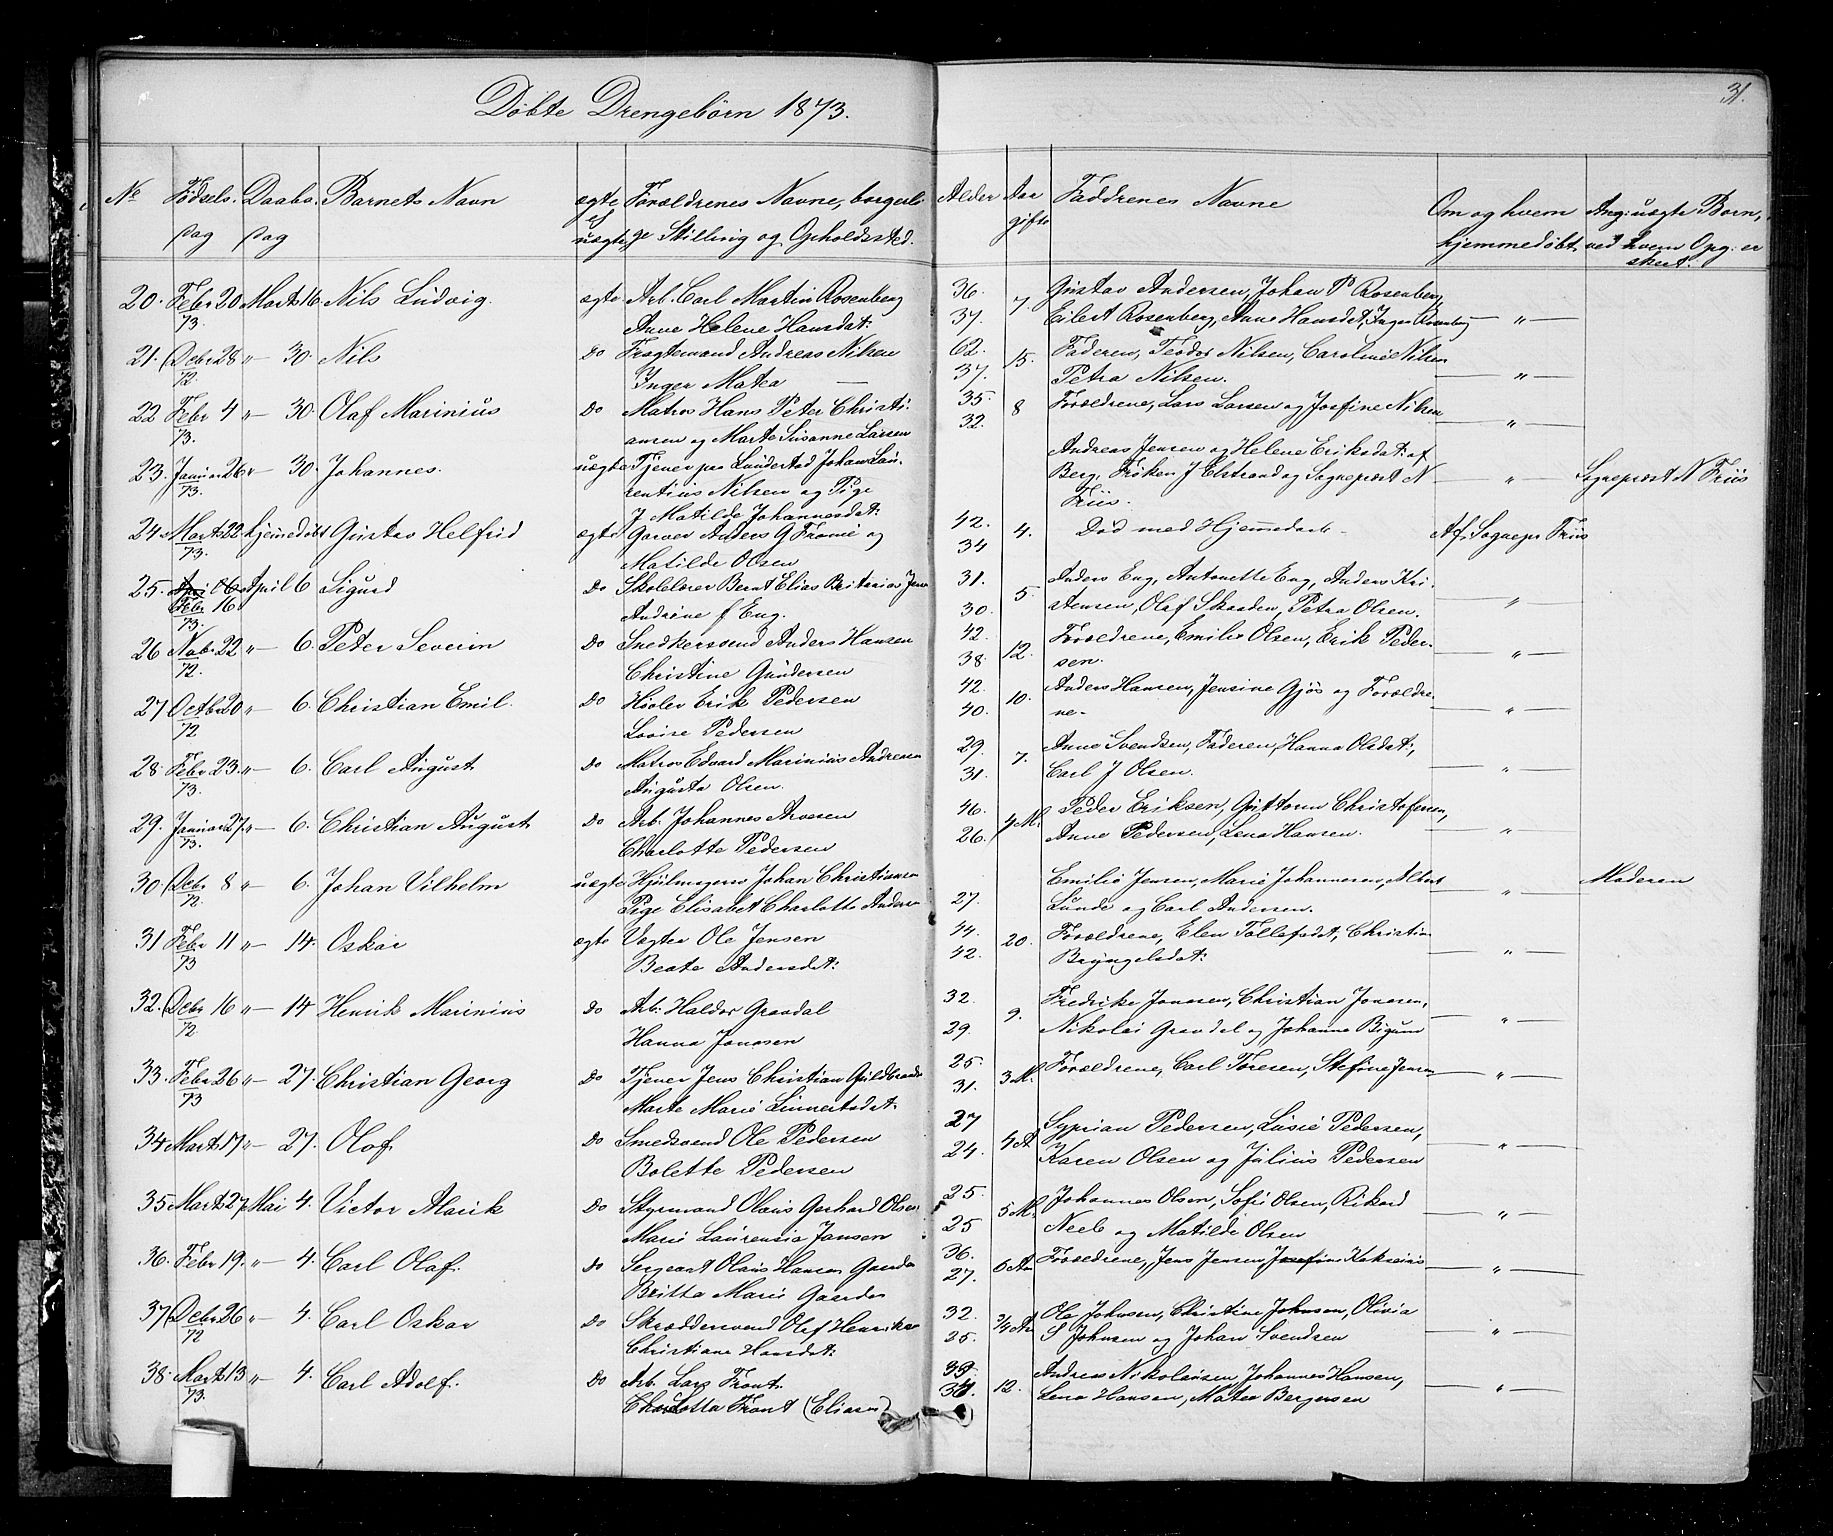 Døbte Drengebørn 1873.
31.
No Fødsels- Daabs- Barnets Navn ægte Forældrenes Navne, borgerli- Alder Aar Faddrenes Navne Om og hvem Ang: uægte Børn,
dag dag el uægte ge Stilling og Opholdssted. gifte hjemmedøbt ved hvem Opg: er
skeet.
20. Febr 20 Marts 16. Nils Ludvig. ægte Arb. Carl Martin Rosenberg 36. 7 Gustav Andersen, Johan P Rosenberg,
73. Anne Helene Hansdat: 37. Eilert Rosenberg, Anne Hansdat, Inger Rosenberg — " —
21. Debr 28 "— 30. Nils Do Fragtemand Andreas Nilsen 62. 15. Faderen, Teodor Nilsen, Caroline Nilsen
72. Inger Matea — 37. Petra Nilsen. — " —
22 Febr 4 "— 30. Olaf Marinius Do Matros Hans Peter Christi- 35. 8 Forældrene, Lars Larsen og Josfine Nilsen
73. ansen og Marte Susanne Larsen 32. — " —
23. Januar 26 "— 30. Johannes. uægte Tjener paa Lundestad Johan Lau- Andreas Jensen og Helene Eriksdat: af
73. rentius Nilsen og Pige Berg, Frøken J Elstrand og Sognepræst N — " — Sognepræst N Friis
J Matilde Johannesdat: Friis.
24. Marts 22 hjemedøbt Gustav Helfrid ægte Garver Anders G Fromé og 42. 4. Død med Hjemmedaab — Af Sognepr Friis
73. Matilde Olsen 34
25. Febr 16 April 6 Sigurd Do Skolelærer Bernt Elias 31. 5. Anders Eng, Antonette Eng, Anders Kri-
73. Andrine f Eng. 30. stensen, Olaf Skaaden, Petra Olsen. — " —
26 Nobr 22 "— 6. Peter Severin Do Snedkersvend Anders Hansen 42. 12. Forældrene, Emilie Olsen, Erik Peder-
72. Christine Gundersen 38. sen. — " —
27 Octbr 20 "— 6. Christian Emil. Do Høvler Erik Pedersen 42. 10. Anders Hansen, Jensine Gjøs og Forældre-
72 Lovise Pedersen 40. ne. — " —
28 Febr 23. "— 6. Carl August Do Matros Edvard Marinius Andresen 29. 7. Anne Svendsen, Faderen, Hanna Olsdat:,
73. Augusta Olsen. 31. Carl J Olsen. — " —
29. Januar 27. "— 6. Christian August Do Arb. Johannes Arvesen 46. 4 M. Peder Eriksen, Guttorm Christofersen,
73. Charlotte Pedersen 26. Anne Pedersen, Lena Hansen. — " —
30. Debr 8 "— 6. Johan Vilhelm uægte Hjulmager Johan Christiansen Emilie Jensen, Marie Johannesen, Albert — " — Moderen
72. Pige Elisabet Charlotte Anders 27. Lunde og Carl Andersen.
31 Febr 11 "— 14. Oskar ægte Vægter Ole Jensen 44. 20. Forældrene, Elen Tollefsdat, Christin
73 Beate Andersdat: 42. Bryngelsdat: — " —
32. Debr 16 "— 14 Henrik Marinius Do Arb: Haldor Gravdal 32. 9. Fredrike Jonasen, Christian Jonasen,
72 Hanna Jonasen 29. Nikolai Gravdal og Johanne Bigum — " —
33. Febr 26 "— 27. Christian Georg Do Tjener Jens Christian Guldbrands 25. 3 M. Forældrene, Carl Toresen, Stefine Jensen — " —
73 Marte Marie Linnertsdat: 31.
34 Marts 17 "— 27. Olaf Do Smedsvend Ole Pedersen 27 4 A Syprian Pedersen, Lusie Pedersen,
Bolette Pedersen 24. Karen Olsen og Julius Pedersen — " —
35 Marts 27 Mai 4. Victor Alarik Do Styrmand Olaus Gerhard Olsen 25. 5 M. Johannes Olsen, Sofie Olsen, Rikard
Marie Laurensia Jansen 25 Neeb og Matilde Olsen — " —
36. Febr 19. "— 4. Carl Olaf. Do Sergeant Olaus Hansen Gaarder 36. 6 Aar Forældrene, Jens Jensen, Josefine
Britta Marie Gaarder 27. — " —
37 Debr 26 "— 4. Carl Oskar Do Skræddersvend Olef Henriksen 32. 3/4 Aar Ole Johnsen, Christine Johnsen, Olivia
72 Christiane Hansdat: 25. S Johnsen og Johan Svendsen — " —
38. Marts 13 "— 4. Carl Adolf. Do Arb. Lars Tront. 35. 12. Andreas Nikolaisen Johannes Hansen,
73. Charlotta Tront (Eliasen) Lena Hansen, Matea Bergersen — " —